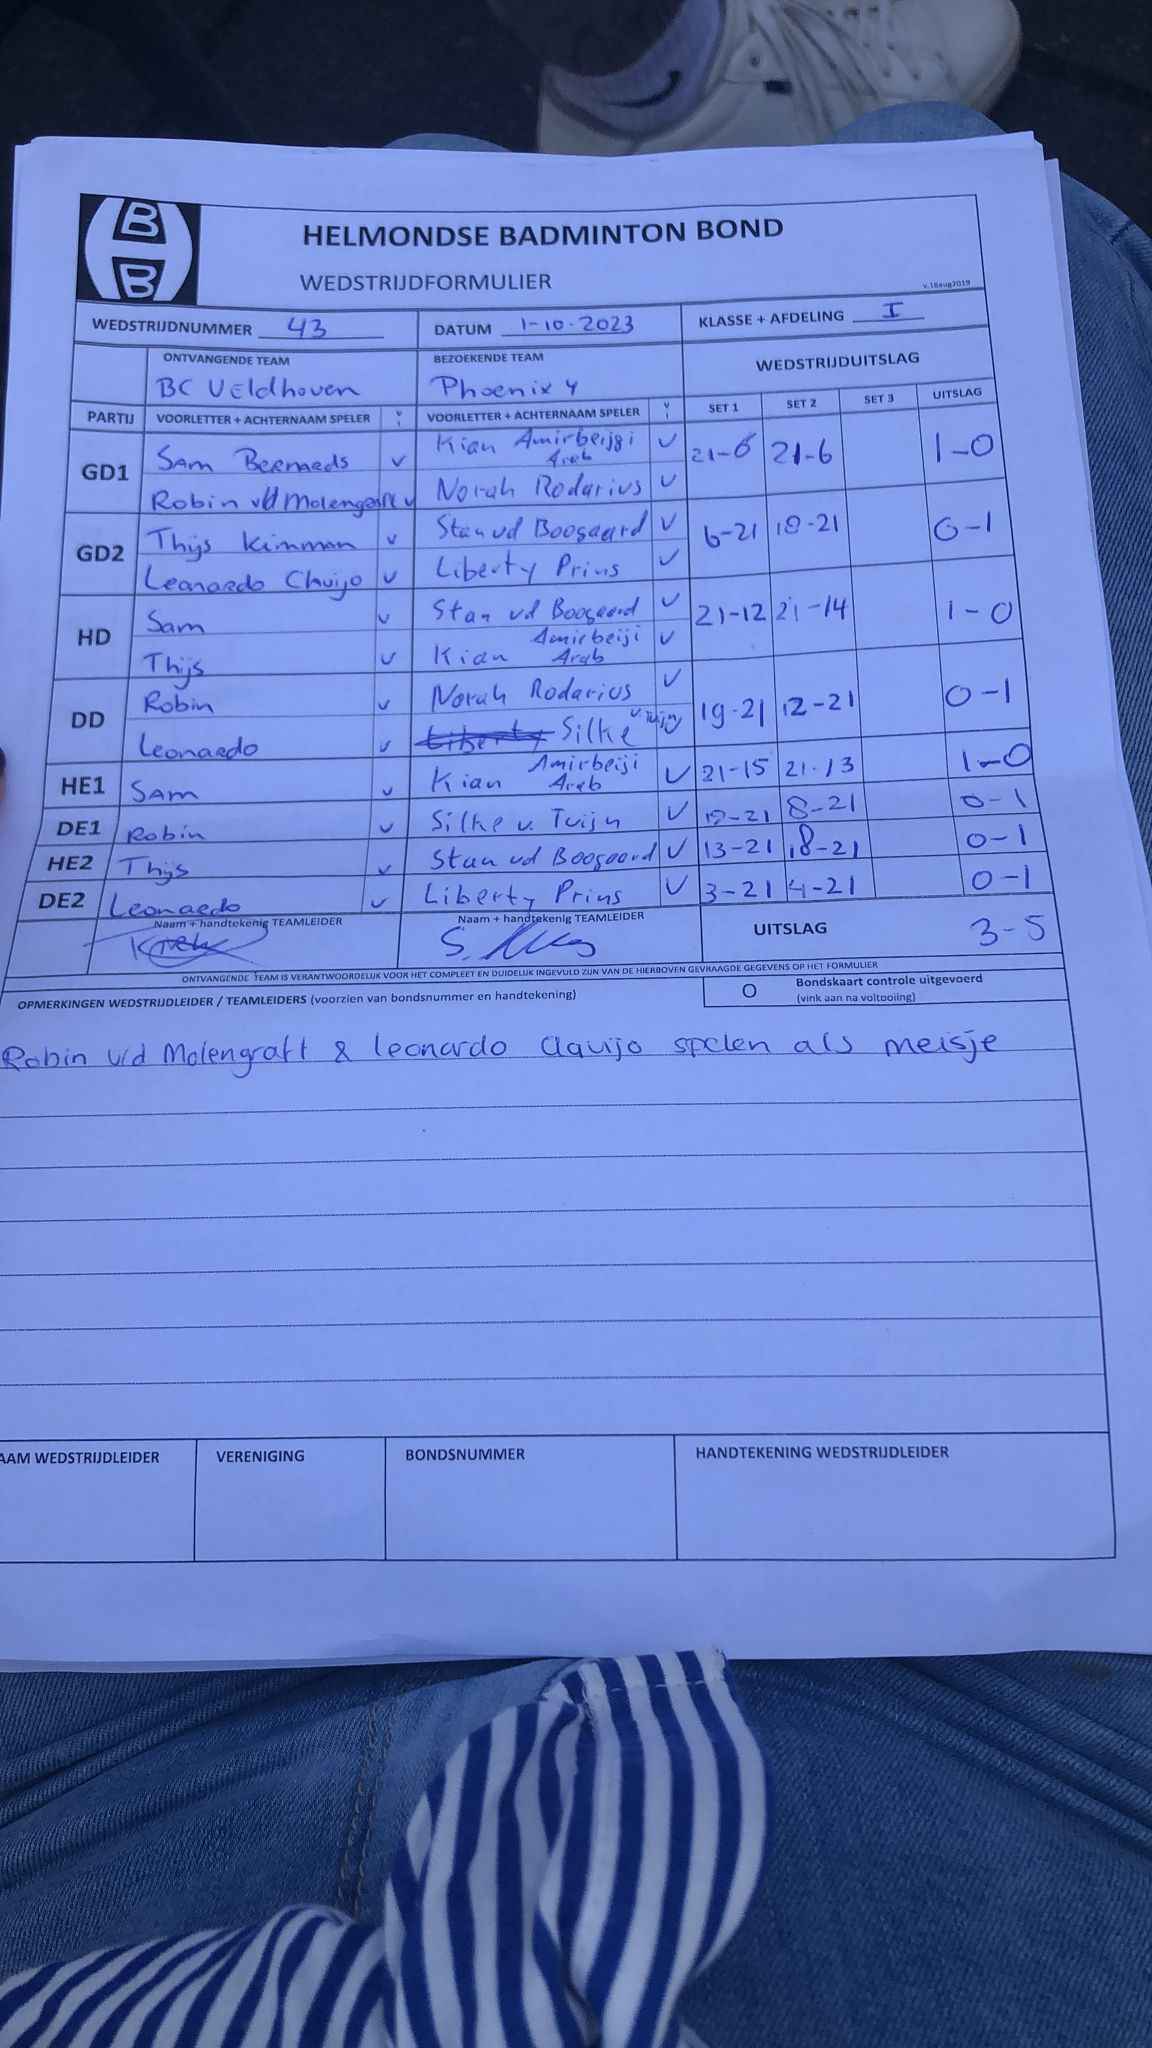 HELMONDSE BADMINTON BOND
WEDSTRIJDFORMULIER
v.18aug2019
WEDSTRIJDNUMMER 43 DATUM 1-10-2023 KLASSE + AFDELING I
ONTVANGENDE TEAM BEZOEKENDE TEAM WEDSTRIJDUITSLAG
BC Veldhoven Phoenix 4
PARTIJ VOORLETTER + ACHTERNAAM SPELER VOORLETTER + ACHTERNAAM SPELER SET 1 SET 2 SET 3 UITSLAG
GD1 Sam Bernaeds v Kian Amirbeijgi Arab v 21-6 21-6 1-0
Robin vd Molengraft v Norah Rodarius v
GD2 Thijs Kimman v Stan vd Boogaard v 6-21 18-21 0-1
Leonardo Chuijo v Liberty Prins v
HD Sam v Stan vd Boogaard v 21-12 21-14 1-0
Thijs v Kian Amirbeiji Arab v
DD Robin v Norah Rodarius v 19-21 12-21 0-1
Leonardo v Liberty Silke v. Tuijn v
HE1 Sam v Kian Amirbeiji Arab v 21-15 21-13 1-0
DE1 Robin v Silke v. Tuijn v 8-21 0-1
HE2 Thijs v Stan vd Boogaard v 13-21 18-21 0-1
DE2 Leonardo v Liberty Prins v 3-21 4-21 0-1
Naam + handtekenig TEAMLEIDER Naam + handtekenig TEAMLEIDER UITSLAG 3-5
ONTVANGENDE TEAM IS VERANTWOORDELIJK VOOR HET COMPLEET EN DUIDELIJK INGEVULD ZIJN VAN DE HIERBOVEN GEVRAAGDE GEGEVENS OP HET FORMULIER
OPMERKINGEN WEDSTRIJDLEIDER / TEAMLEIDERS (voorzien van bondsnummer en handtekening) O Bondskaart controle uitgevoerd
(vink aan na voltooiing)
Robin v/d Molengraft & leonardo Clavijo spelen als meisje
AAM WEDSTRIJDLEIDER VERENIGING BONDSNUMMER HANDTEKENING WEDSTRIJDLEIDER